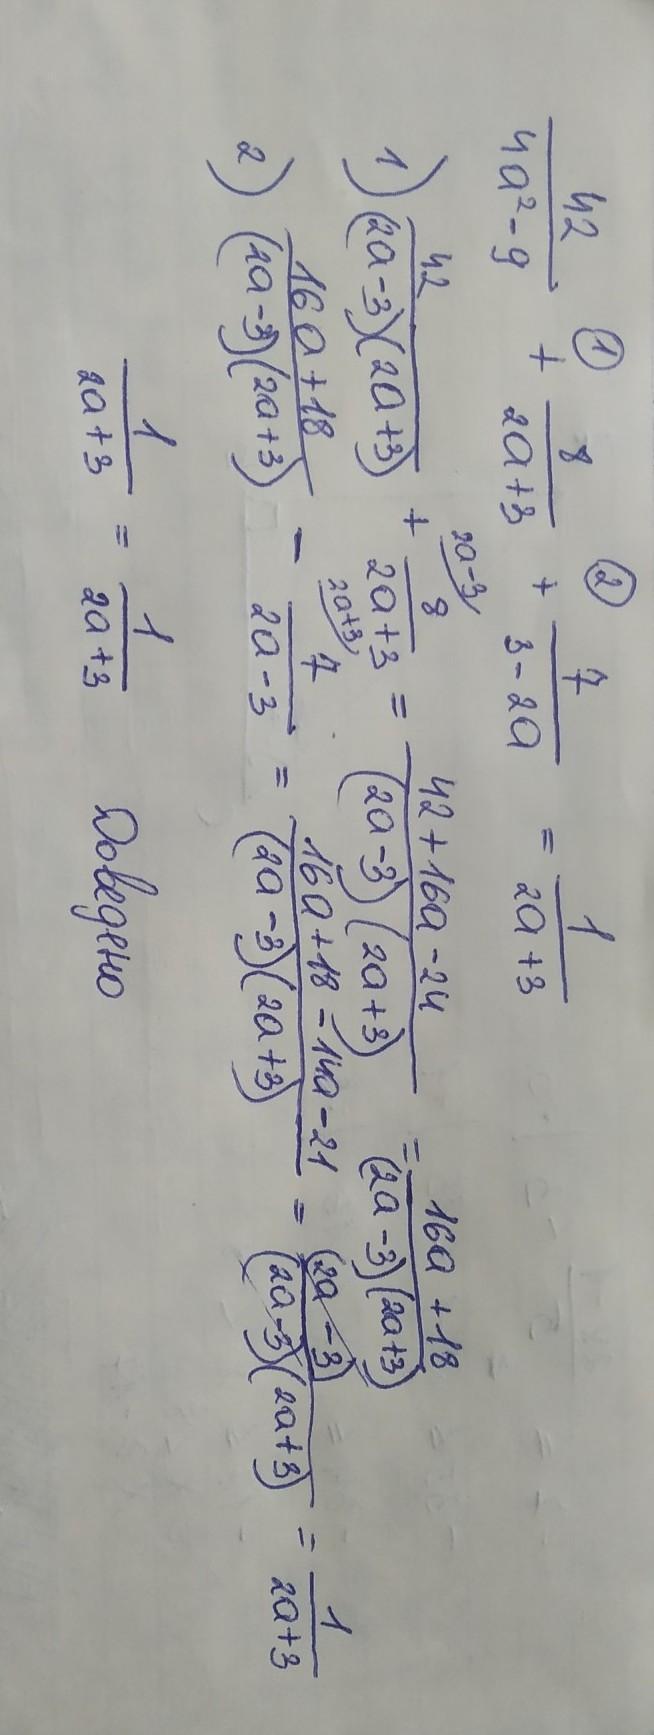 42/(4a²-9) ① + 8/(2a+3) ② + 7/(3-2a) = 1/(2a+3)
1) 42/((2a-3)(2a+3)) + 8/(2a+3) (2a-3 = (42+16a-24)/((2a-3)(2a+3)) = (16a+18)/((2a-3)(2a+3))
2) (16a+18)/((2a-3)(2a+3)) - 7/(2a-3) (2a+3 = (16a+18-14a-21)/((2a-3)(2a+3)) = (2a-3)/((2a-3)(2a+3)) = 1/(2a+3)
1/(2a+3) = 1/(2a+3) Доведено